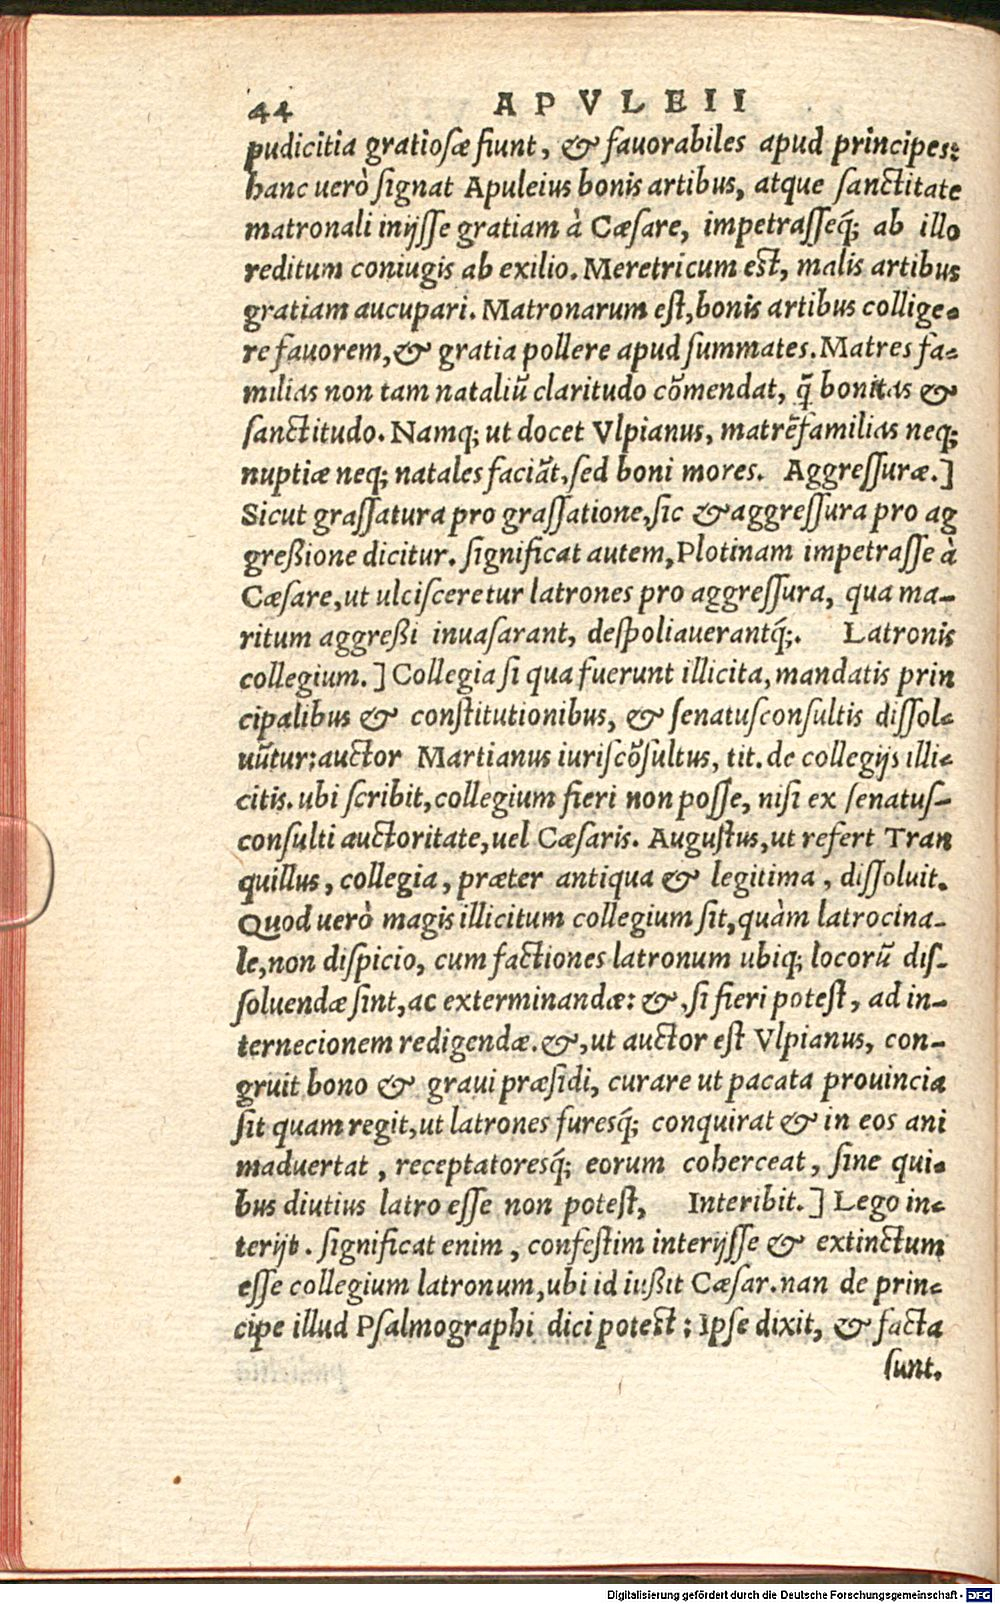 44 APVLEII
pudicitia gratiosæ fiunt, & fauorabiles apud principes:
hanc uerò signat Apuleius bonis artibus, atque sanctitate
matronali inijsse gratiam à Cæsare, impetrasseq́; ab illo
reditum coniugis ab exilio. Meretricum est, malis artibus
gratiam aucupari. Matronarum est, bonis artibus collige-
re fauorem, & gratia pollere apud summates. Matres fa-
milias non tam nataliũ claritudo cõmendat, q̃ bonitas &
sanctitudo. Namq; ut docet Vlpianus, matrẽfamilias neq;
nuptiæ neq; natales faciãt, sed boni mores. Aggressuræ.]
Sicut grassatura pro grassatione, sic & aggressura pro ag
greßione dicitur. significat autem, Plotinam impetrasse à
Cæsare, ut ulcisceretur latrones pro aggressura, qua ma-
ritum aggreßi inuasarant, despoliauerantq́;. Latronis
collegium.] Collegia si qua fuerunt illicita, mandatis prin
cipalibus & constitutionibus, & senatusconsultis dissol-
uũtur: auctor Martianus iuriscõsultus, tit. de collegijs illi-
citis. ubi scribit, collegium fieri non posse, nisi ex senatus-
consulti auctoritate, uel Cæsaris. Augustus, ut refert Tran
quillus, collegia, præter antiqua & legitima, dissoluit.
Quod uerò magis illicitum collegium sit, quàm latrocina-
le, non dispicio, cum factiones latronum ubiq; locorũ dis-
soluendæ sint, ac exterminandæ: &, si fieri potest, ad in-
ternecionem redigendæ. &, ut auctor est Vlpianus, con-
gruit bono & graui præsidi, curare ut pacata prouincia
sit quam regit, ut latrones furesq́; conquirat & in eos ani
maduertat, receptatoresq́; eorum coherceat, sine qui-
bus diutius latro esse non potest, Interibit.] Lego in-
terijt. significat enim, confestim interijsse & extinctum
esse collegium latronum, ubi id iußit Cæsar. nan de prin-
cipe illud Psalmographi dici potest: Ipse dixit, & facta
sunt.
Digitalisierung gefördert durch die Deutsche Forschungsgemeinschaft - DFG